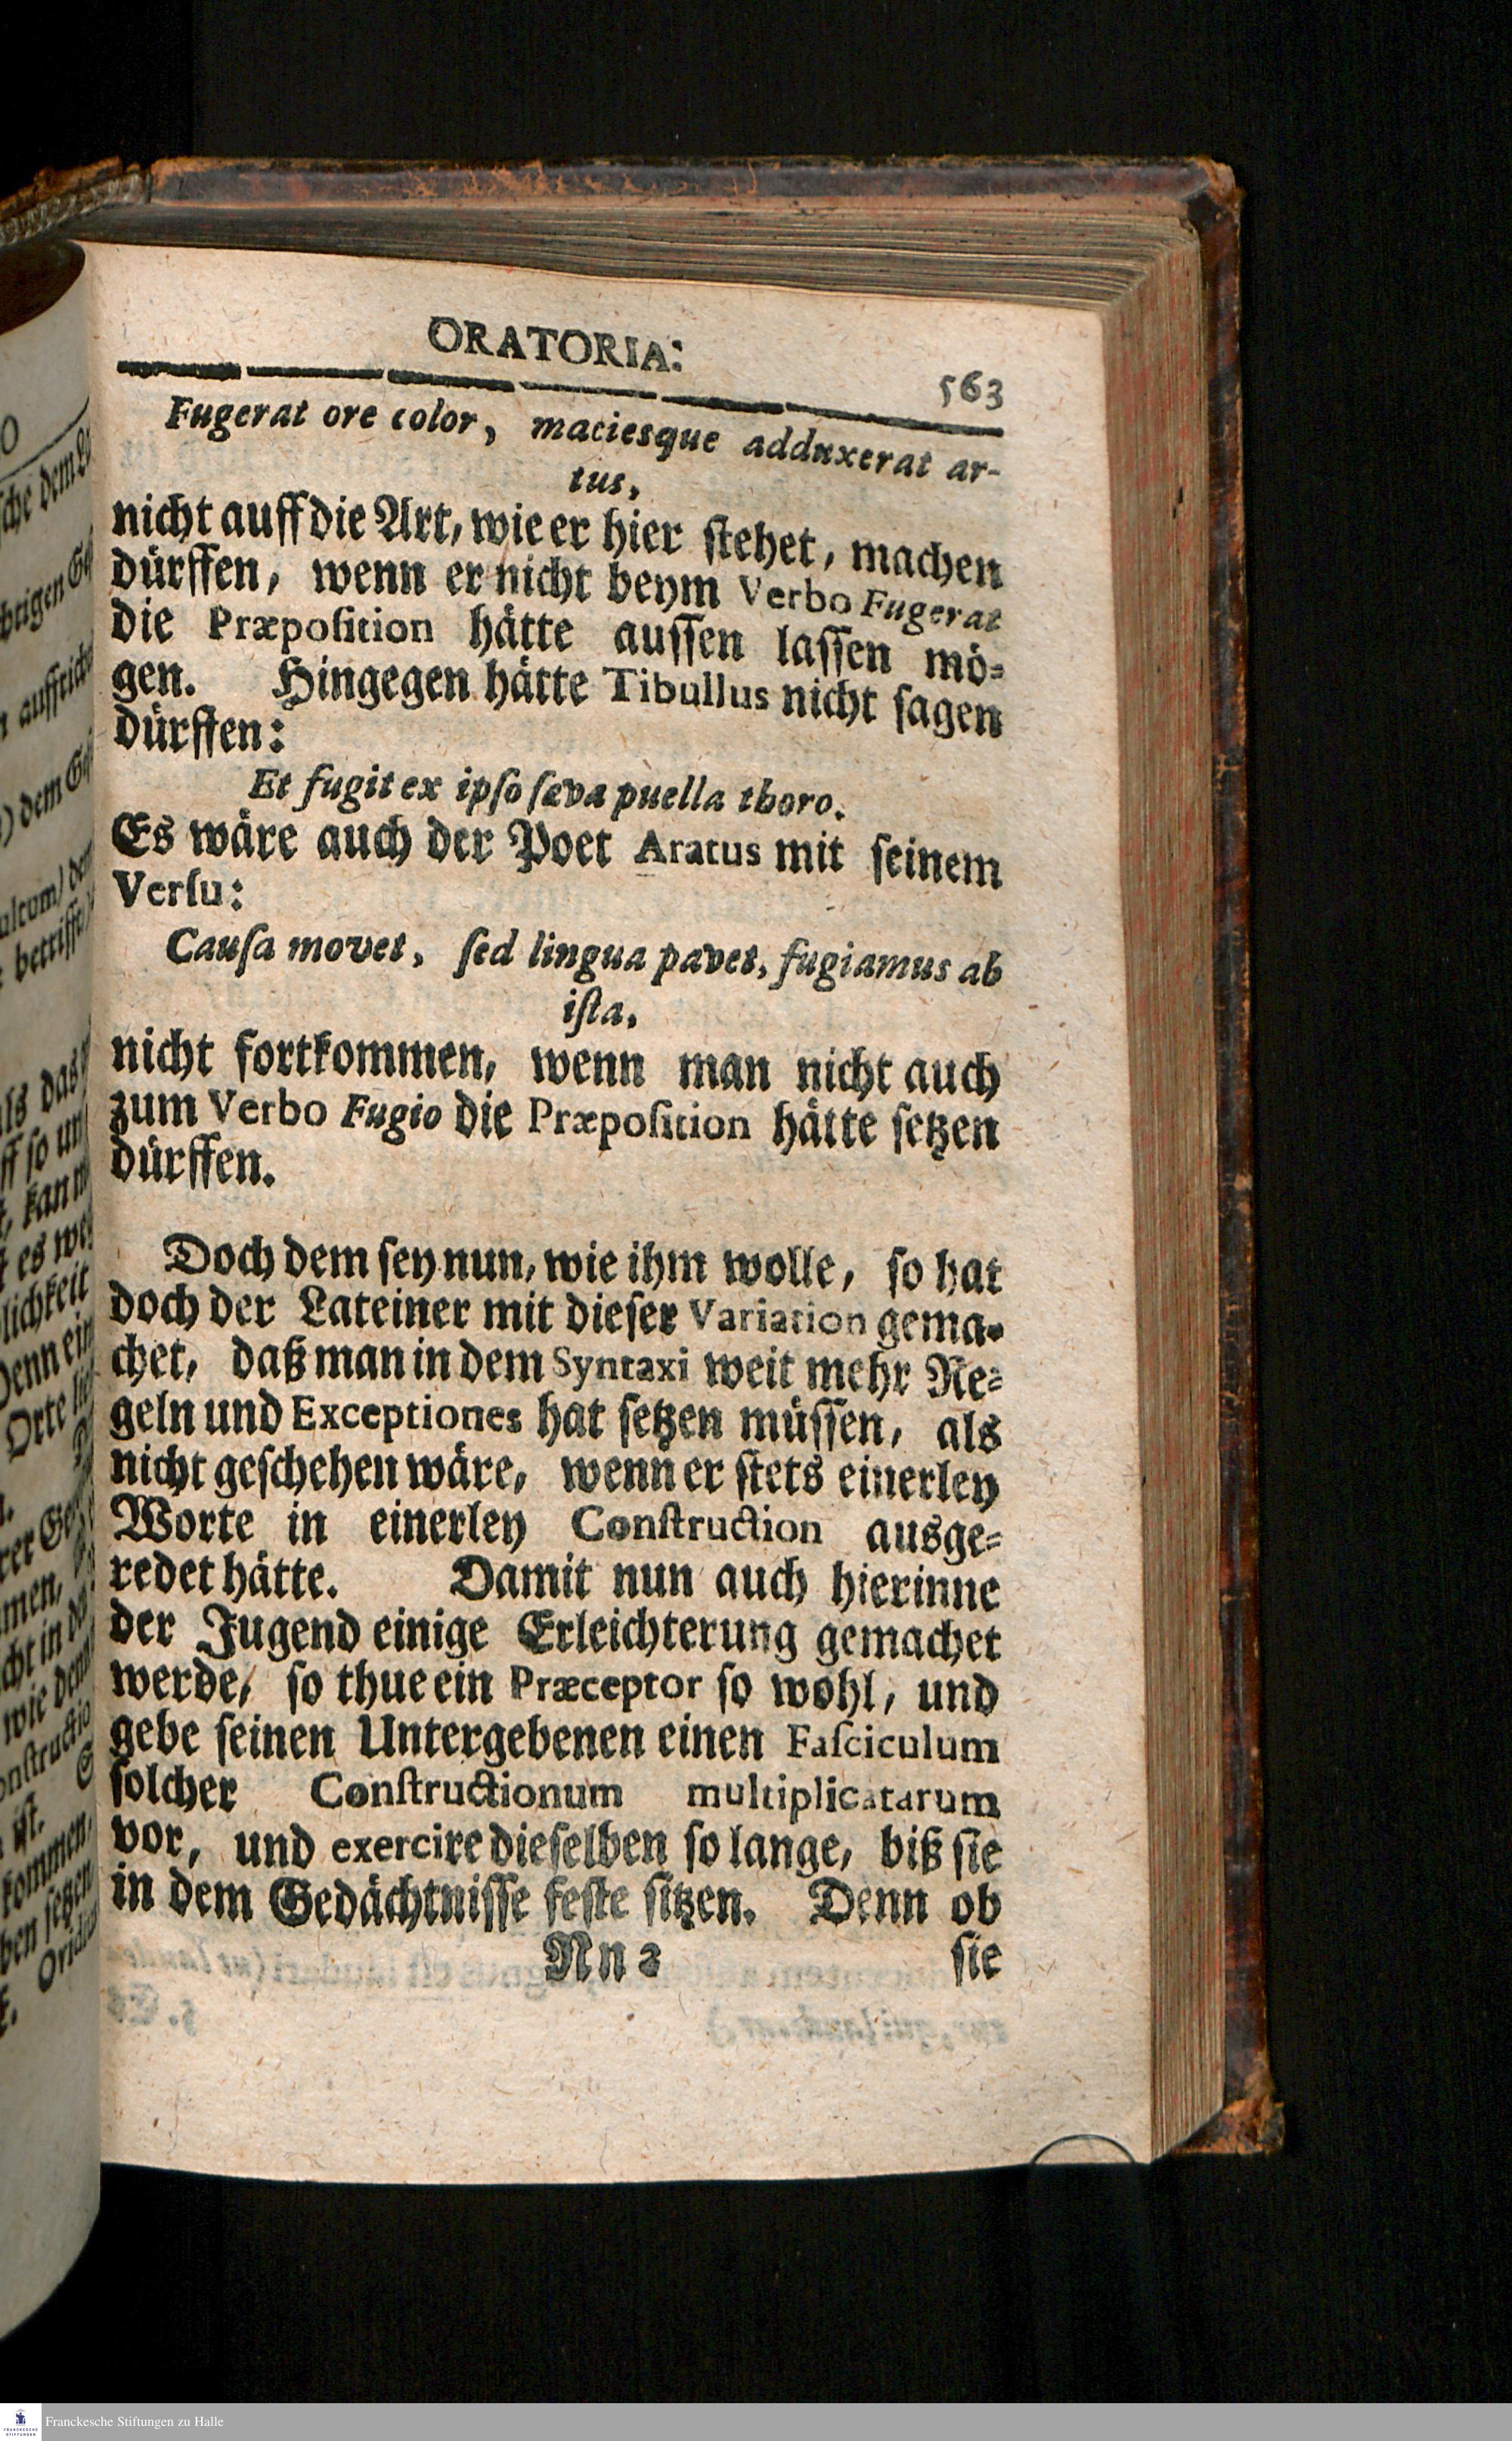 ORATORIA:
563
Fugerat ore color, maciesque adduxerat ar-
tus,
nicht auff die Art, wie er hier stehet, machen
dürffen, wenn er nicht beym Verbo Fugerat
die Præpoſition hätte aussen lassen mö-
gen. Hingegen hätte Tibullus nicht sagen
dürffen:
Et fugit ex ipſo ſæva puella thoro.
Es wäre auch der Poet Aratus mit seinem
Verſu:
Cauſa movet, ſed lingua pavet, fugiamus ab
iſta,
nicht fortkommen, wenn man nicht auch
zum Verbo Fugio die Præpoſition hätte setzen
dürffen.
Doch dem sey nun, wie ihm wolle, so hat
doch der Lateiner mit dieser Variation gema-
chet, daß man in dem Syntaxi weit mehr Re-
geln und Exceptiones hat setzen müssen, als
nicht geschehen wäre, wenn er stets einerley
Worte in einerley Conſtruction ausge-
redet hätte. Damit nun auch hierinne
der Jugend einige Erleichterung gemachet
werde, so thue ein Præceptor so wohl, und
gebe seinen Untergebenen einen Faſciculum
solcher Conſtructionum multiplicatarum
vor, und exercire dieselben so lange, biß sie
in dem Gedächtnisse feste sitzen. Denn ob
Nn 2
sie
Franckesche Stiftungen zu Halle